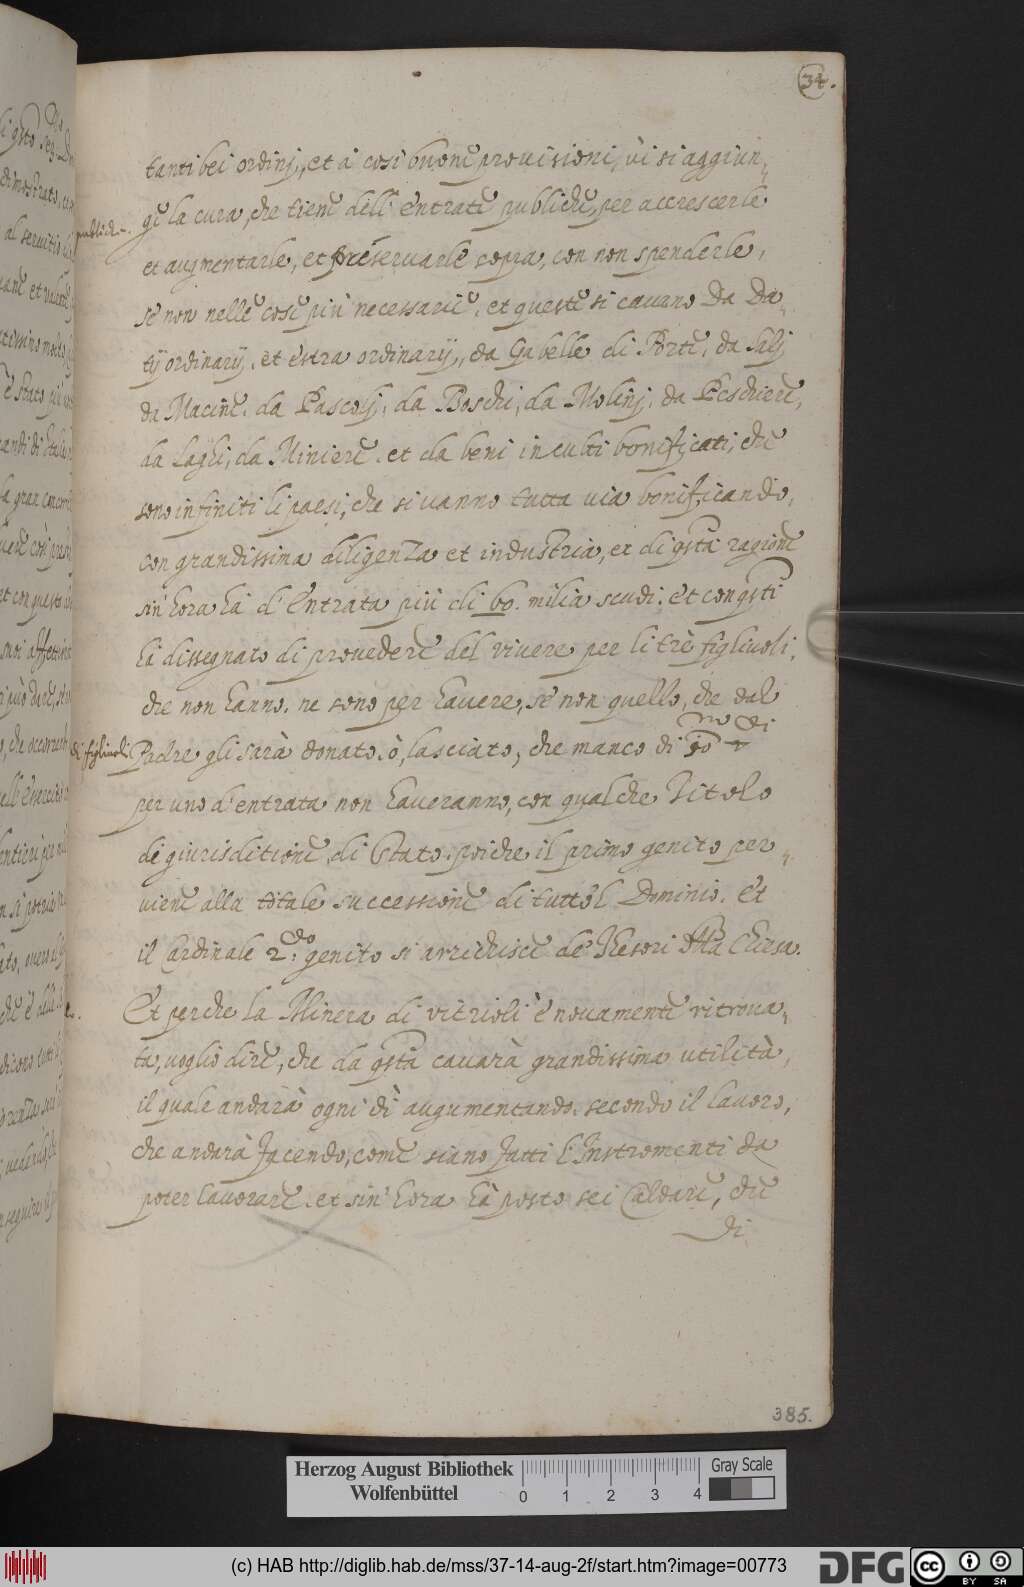 34.
tanti bei ordini, et à così buone provisioni, vi si aggiun„
ge la cura, che tiene dell' entrate publiche, per accrescerle
publich-.
et augmentarle, et preservarle sopra, con non spenderle,
se non nelle cose più necessarie. et queste si cavano Da Da„
tij ordinarij, et estra ordinarij, da Gabelle di Porte, da Salj
da Macine, da Pascoij, da Boschi, da Molinj, da Peschiere,
da Laghi, da Miniere. et da beni inculti bonificati, che
sono infiniti li paesi, che si vanno tutta via bonificando,
con grandissima diligenza et industria, et di qsta ragione
sin' hora hà d' Entrata più di bo. milia scudi. et con qsti
hà dissegnato di provedere del vivere per li trè figliuoli,
che non hanno, ne sono per havere, se non quello, che dal
di figliuoli
Padre gli sarà donato, ò, lasciato, che manco di
per uno d'entrata non haveranno, con qualche Titolo
de giurisditione di Stato, poiche il primo genito per„
viene alla totale successione di tutto'l Dominio. Et
il Cardinale 2.do genito si arrichisce de Thesori della Chiesa.
Et perche la Minera di vitrioli è novamente ritrova„
ta, voglio dire, che da qsta cavarà grandissima utilità,
il quale andarà ogni dì augumentando, secondo il lavoro,
che andarà facendo, come siano fatti l'Instromenti da
poter lavorare. et sin' hora hà posto sei Caldare, che
di
385.
Herzog August Bibliothek
Wolfenbüttel
0 1 2 3 4
Gray Scale
(c) HAB http://diglib.hab.de/mss/37-14-aug-2f/start.htm?image=00773
DFG
cc
BY SA